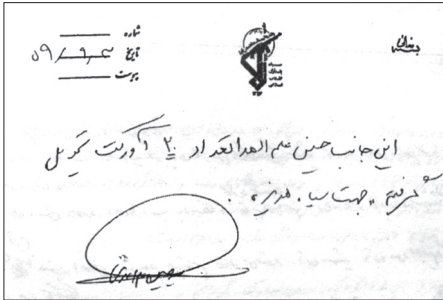 بسمه‌تعالی
شماره
تاریخ ۵۹/۹/۳
پیوست
این جانب حسین علم الهدا تعداد ۲۰ کورکت تحویل
گرفتم جهت سپاه هویزه.